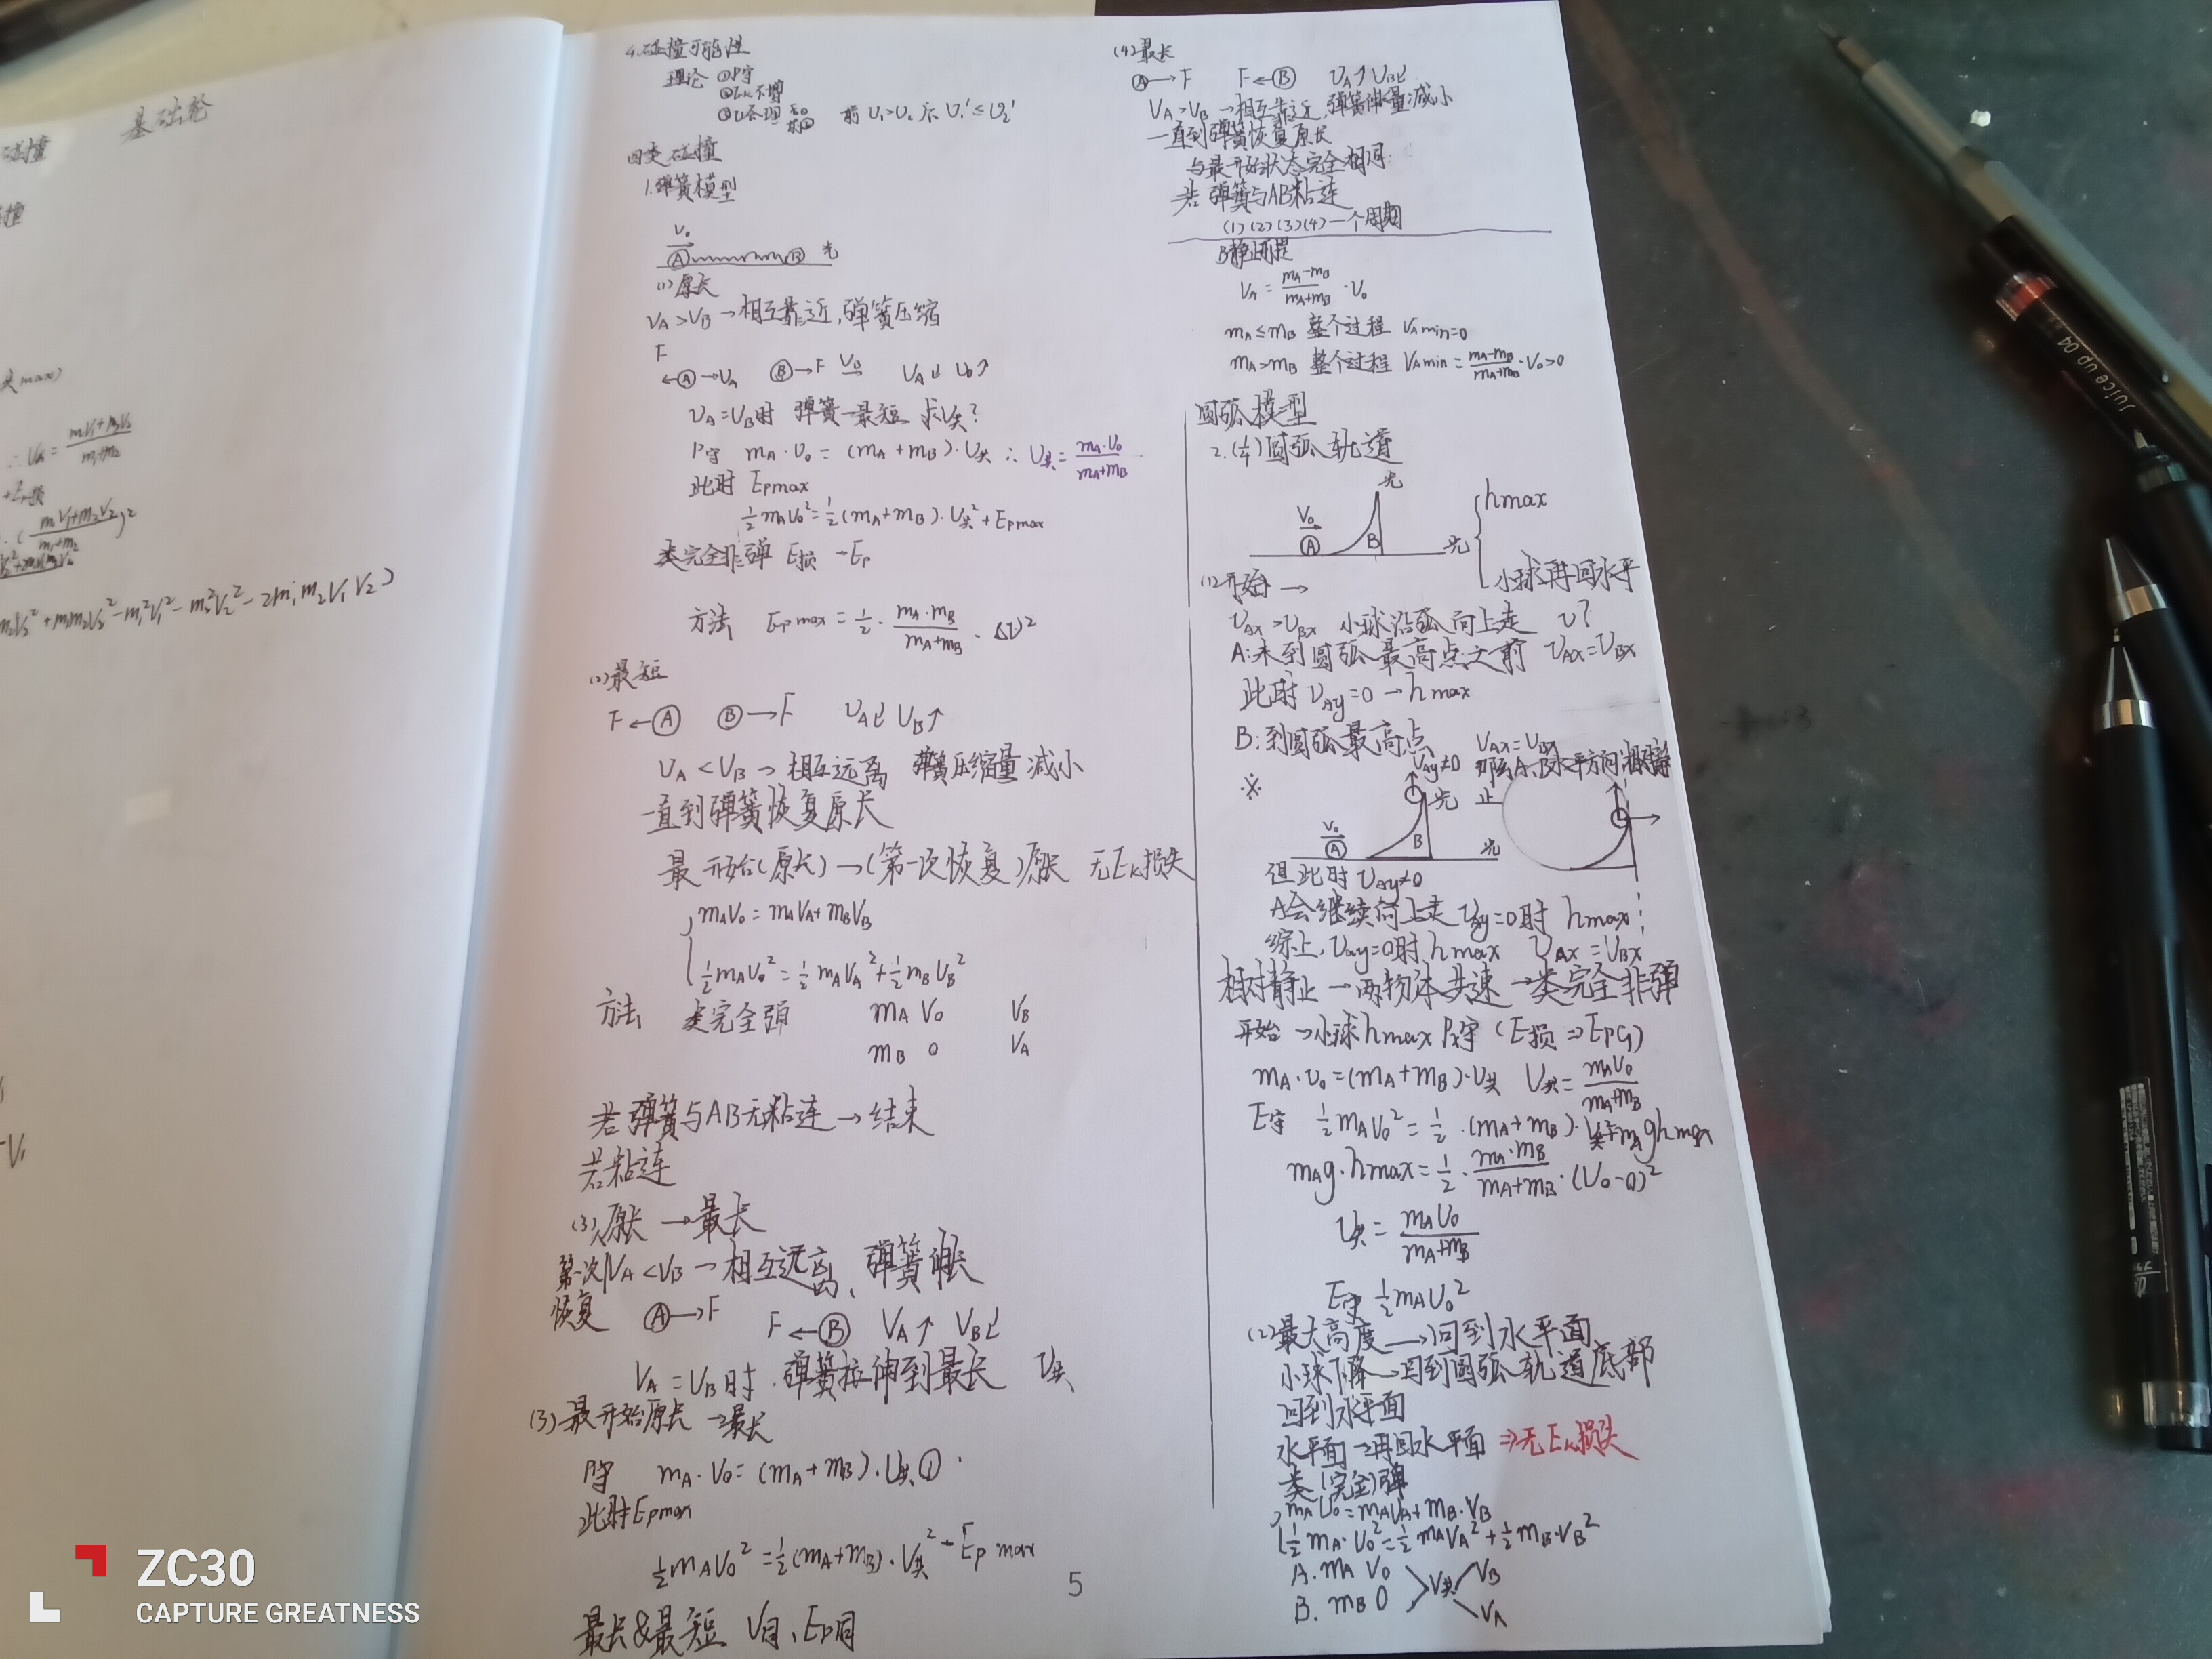 基础轮
碰撞
撞
max)
∴V共=(m₁V₁+m₂V₂)/(m₁+m₂)
+E损
(m₁V₁+m₂V₂)/(m₁+m₂))²
m₂V₂²+m₁m₂V₂²-m₁²V₁²-m₂²V₂²-2m₁m₂V₁V₂)
4.碰撞可能性
理论 ①P守
②Ek不增
③υ合理 前υ₁>υ₂ 后υ₁'≤υ₂'
四类碰撞
1.弹簧模型
V₀
A B 光
(1)原长
VA>VB→相互靠近,弹簧压缩
F
←Ⓐ→VA Ⓑ→F V₀ VA↓ VB↑
VA=VB时 弹簧最短 求V共?
P守 mA·V₀=(mA+mB)·V共 ∴V共=mA·V₀/(mA+mB)
此时Epmax
½mAV₀²=½(mA+mB)·V共²+Epmax
类完全非弹 E损→Ep
方法 Epmax=½·mA·mB/(mA+mB)·Δυ²
(2)最短
F←Ⓐ Ⓑ→F VA↓ VB↑
VA<VB→相互远离 弹簧压缩量减小
一直到弹簧恢复原长
最开始(原长)→(第一次恢复)原长 无Ek损失
mAV₀=mAVA+mBVB
½mAV₀²=½mAVA²+½mBVB²
方法 类完全弹 mA V₀ VB
mB 0 VA
若弹簧与AB无粘连→结束
若粘连
(3)原长→最长
第一次恢复 VA<VB→相互远离,弹簧伸长
Ⓐ→F F←Ⓑ VA↑ VB↓
VA=VB时.弹簧拉伸到最长 V共
(3)最开始原长→最长
P守 mA·V₀=(mA+mB)·V共①
此时Epmax
½mAV₀²=½(mA+mB)·V共²+Epmax
最长&最短 V同、Ep同
5
(4)最长
Ⓐ→F F←Ⓑ VA↑VB↓
VA>VB→相互靠近,弹簧伸长量减小
一直到弹簧恢复原长
与最开始状态完全相同
若弹簧与AB粘连
(1)(2)(3)(4)一个周期
B静止前提
VA=(mA-mB)/(mA+mB)·V₀
mA≤mB 整个过程 VAmin=0
mA>mB 整个过程 VAmin=(mA-mB)/(mA+mB)·V₀>0
圆弧模型
2.(¼)圆弧轨道
光
V₀ hmax
Ⓐ B 光
小球再回水平
(1)开始→
VAx>VBx 小球沿弧向上走 υ?
A:未到圆弧最高点之前 VAx=VBx
此时VAy=0→hmax
B:到圆弧最高点 VAx=VBx
VAy≠0 水平方向相对静止
V₀ 光
Ⓐ B 光
但此时VAy≠0
A会继续向上走 VAy=0时 hmax
综上,VAy=0时hmax VAx=VBx
相对静止→两物体共速→类完全非弹
开始→小球hmax P守(E损⇒EpG)
mA·υ₀=(mA+mB)·V共 V共=mAV₀/(mA+mB)
E守 ½mAV₀²=½·(mA+mB)·V共²+mAghmax
mAg·hmax=½·mA·mB/(mA+mB)·(V₀-0)²
V共=mAV₀/(mA+mB)
E守 ½mAV₀²
(2)最大高度→回到水平面
小球下降→回到圆弧轨道底部
回到水平面
水平面→再回水平面⇒无Ek损失
类(完全)弹
mAV₀=mAVA+mB·VB
½mA·V₀²=½mAVA²+½mB·VB²
A. mA V₀ V共 VB
B. mB 0 VA
Juice up 04
ZC30
CAPTURE GREATNESS